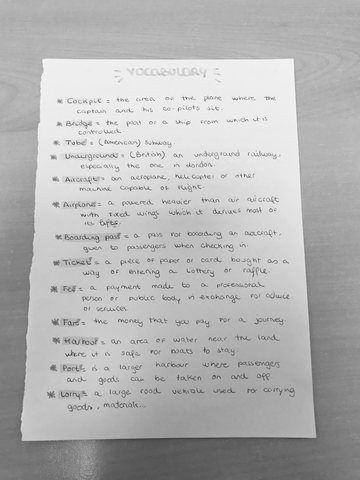 VOCABULARY
* Cockpit = the area of the plane where the
captain and his co-pilots sit.
* Bridge = the part of a ship from which it is
controlled.
* Tube = (American) subway.
* Underground = (British) an underground railway,
especially the one in London.
* Aircraft = an aeroplane, helicopter or other
machine capable of flight.
* Airplane = a powered heavier than air aircraft
with fixed wings which it derives most of
its lifts.
* Boarding pass = a pass for boarding an aircraft,
given to passengers when checking in.
* Ticket = a piece of paper or card bought as a
way of entering a lottery or raffle.
* Fee = a payment made to a professional
person or public body in exchange for advice
or services.
* Fare = the money that you pay for a journey
* Harbour = an area of water near the land
where it is safe for boats to stay.
* Port = is a larger harbour where passengers
and goods can be taken on and off
* Lorry = a large road vehible used for carrying
goods, materials...